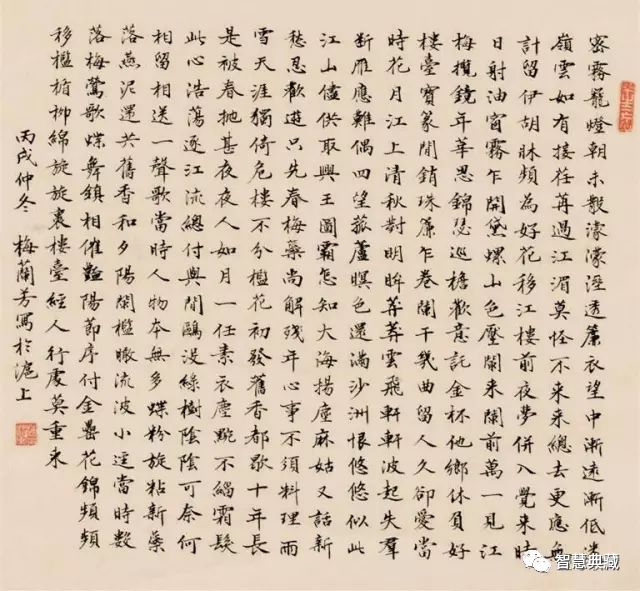 密霧籠燈朝未散濛濛溼透簾衣望中漸遠漸低迷
嶺雲如有接荏苒過江湄莫怪不來來總去更應無
計留伊胡牀頻為好花移江樓前夜夢併入覺來時
日射油窗霧乍開黛螺山色壓闌來闌前萬一見江
梅攬鏡年華思錦瑟巡檐歡意託金杯他鄉休負好
樓臺寶篆閒銷珠簾乍卷闌干幾曲留人久卻愛當
時花月江上清秋對明眸莽莽雲飛軒軒波起失羣
斷雁應難偶四望菰蘆暝色還滿沙洲恨悠悠似此
江山儘供取興王圖霸怎知大海揚塵麻姑又話新
愁忍歡遊只先春梅蘂尚解殘年心事不須料理雨
雪天涯獨倚危樓不分檻花初發舊香都歇十年長
是被春拋甚夜夜人如月一任素衣塵涴不緇霜髮
此心浩蕩逐江流總付與閒鷗沒綠樹陰陰可奈何
相留相送一聲歌當時人物本無多蝶粉旋粘新蘂
落燕泥還共舊香和夕陽闌檻瞰流波小逕當時數
落梅鶯歌蝶舞鎮相催豔陽節序付金罍花錦頻頻
移檻楯柳綿旋旋裹樓臺經人行處莫重來
丙戌仲冬 梅蘭芳寫於滬上
智慧典藏